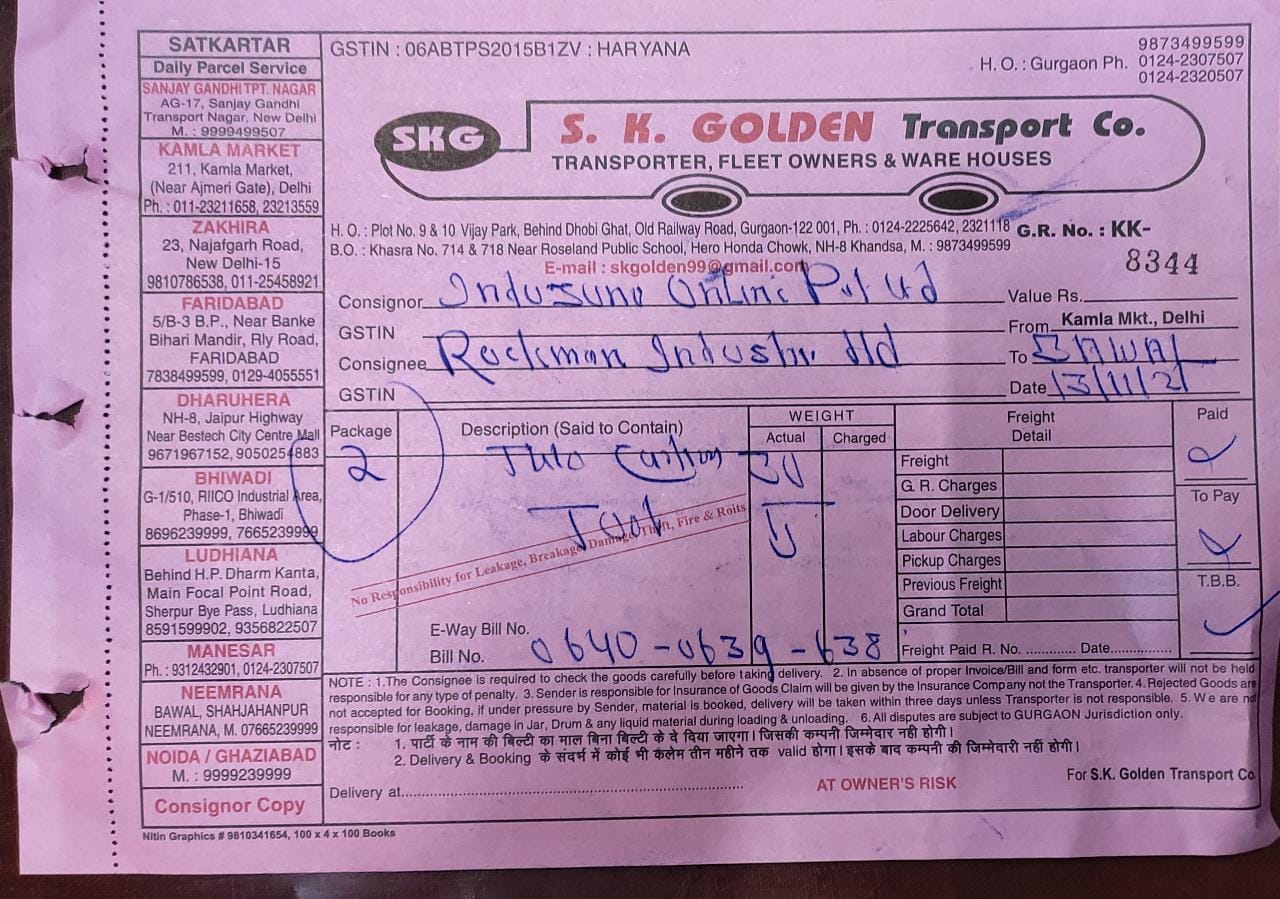 SATKARTAR
Daily Parcel Service
SANJAY GANDHI TPT. NAGAR
AG-17, Sanjay Gandhi
Transport Nagar, New Delhi
M. : 9999499507
KAMLA MARKET
211, Kamla Market,
(Near Ajmeri Gate), Delhi
Ph. : 011-23211658, 23213559
ZAKHIRA
23, Najafgarh Road,
New Delhi-15
9810786538, 011-25458921
FARIDABAD
5/B-3 B.P., Near Banke
Bihari Mandir, Rly Road,
FARIDABAD
7838499599, 0129-4055551
DHARUHERA
NH-8, Jaipur Highway
Near Bestech City Centre Mall
9671967152, 9050254883
BHIWADI
G-1/510, RIICO Industrial Area,
Phase-1, Bhiwadi
8696239999, 7665239999
LUDHIANA
Behind H.P. Dharm Kanta,
Main Focal Point Road,
Sherpur Bye Pass, Ludhiana
8591599902, 9356822507
MANESAR
Ph. : 9312432901, 0124-2307507
NEEMRANA
BAWAL, SHAHJAHANPUR
NEEMRANA, M. 07665239999
NOIDA / GHAZIABAD
M. : 9999239999
Consignor Copy
GSTIN : 06ABTPS2015B1ZV : HARYANA
9873499599
H. O. : Gurgaon Ph. 0124-2307507
0124-2320507
SKG
S. K. GOLDEN Transport Co.
TRANSPORTER, FLEET OWNERS & WARE HOUSES
H. O. : Plot No. 9 & 10 Vijay Park, Behind Dhobi Ghat, Old Railway Road, Gurgaon-122 001, Ph. : 0124-2225642, 2321118
B.O. : Khasra No. 714 & 718 Near Roseland Public School, Hero Honda Chowk, NH-8 Khandsa, M. : 9873499599
E-mail : skgolden99@gmail.com
G.R. No. : KK-
8344
Consignor Online Pvt Ltd
Value Rs.
GSTIN
From Kamla Mkt., Delhi
Consignee Rockman ltd
To BAWAL
GSTIN
Date 13/11/21
Package
Description (Said to Contain)
WEIGHT
Actual
Charged
Freight
Detail
Paid
2
Freight
G. R. Charges
To Pay
Tool
Door Delivery
Labour Charges
Pickup Charges
T.B.B.
Previous Freight
Grand Total
No Responsibility for Leakage, Breakage, Damage, Theft, Fire & Roits
E-Way Bill No.
Bill No. 0640-0639-638
Freight Paid R. No. ............. Date................
NOTE : 1.The Consignee is required to check the goods carefully before taking delivery. 2. In absence of proper Invoice/Bill and form etc. transporter will not be held
responsible for any type of penalty. 3. Sender is responsible for Insurance of Goods Claim will be given by the Insurance Company not the Transporter. 4. Rejected Goods are
not accepted for Booking, if under pressure by Sender, material is booked, delivery will be taken within three days unless Transporter is not responsible. 5. We are not
responsible for leakage, damage in Jar, Drum & any liquid material during loading & unloading. 6. All disputes are subject to GURGAON Jurisdiction only.
नोट : 1. पार्टी के नाम की बिल्टी का माल बिना बिल्टी के दे दिया जाएगा। जिसकी कम्पनी जिम्मेदार नही होगी।
2. Delivery & Booking के संदर्भ में कोई भी कलेम तीन महीने तक valid होगा। इसके बाद कम्पनी की जिम्मेदारी नहीं होगी।
Delivery at.....................................................................
AT OWNER'S RISK
For S.K. Golden Transport Co
Nitin Graphics # 9810341654, 100 x 4 x 100 Books